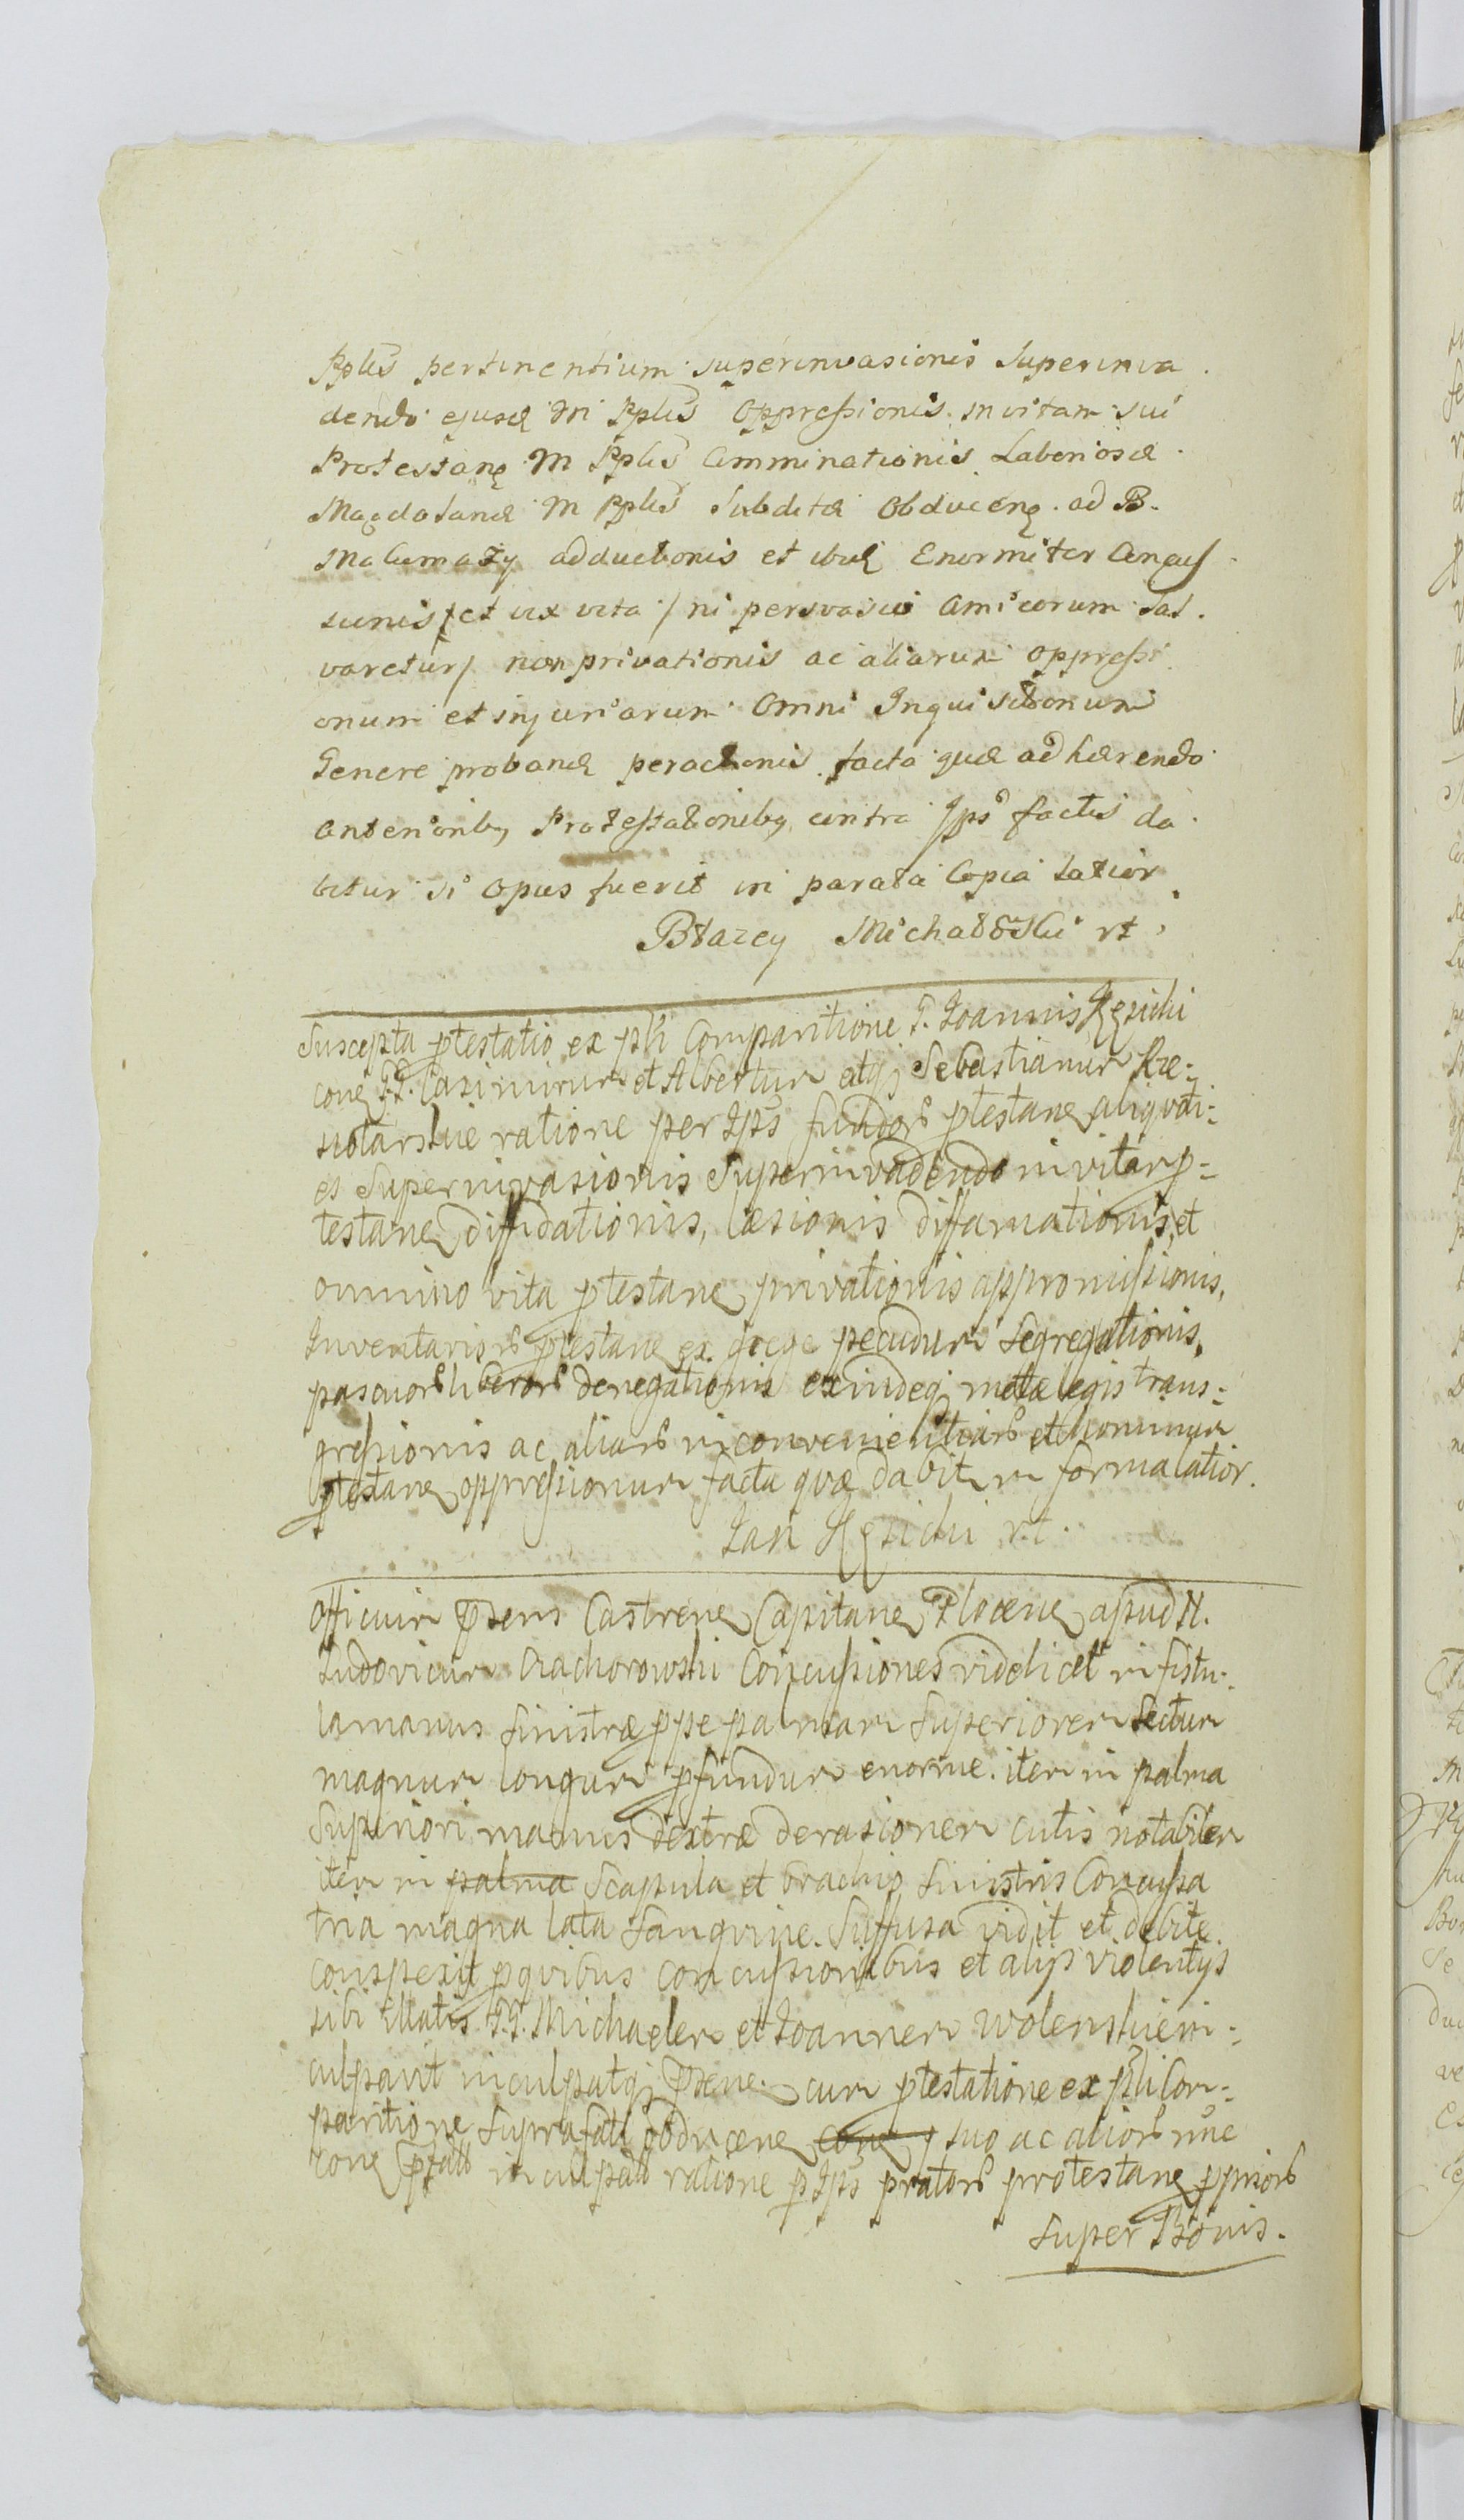 Pplis pertinentium superinvasionis Superinva
dendo ejusd In Pplis Oppressionis in vitam sui
Protestane M Pplis Comminationis Laboriosæ
Magdalanæ M Pplis Subditæ Obducene ad B.
Malumazy adductionis et ibid Enormiter Concus
sionis /et vix vita / ni persvasio Amicorum sal
varetur/ non privationis ac aliarum oppressi
onum et injuriarum Omni Inquisitionum
Genere proband peractionis facta quæ adhærendo
anterioribq Protestationibq contra Ips factis da
bitur si opus fuerit in parata Copia latior
Błazey Michałowski rt
Suscepta ptestatio ex pli Comparitione J.
Joannis
con JJ. Casimirum et Albertum atq Sebastianum
ratione per Ips fundor ptestane aliquoti:
es Superinvasionis Superinvadendo in vitam p:
testane diffidationis, læsionis diffamationis, et
omnino vita ptestane privationis appromissionis,
Inventarior ptestane ex grege pecudum Segregationis,
pascuor liberor denegationis exindeq metæ legis trans:
gressionis ac aliar inconvenientiar et hominum
ptestane oppressionum facta quæ dabit in forma latior.
Jan rt.
Officium Psens Castrene Capitane Plocene apud N.
Ludovicum Ciachorowski Concussiones videlicet in fistu:
la manus sinistræ ppe palmam Superiorem Sectum
magnum longum pfundum enorme. item in palma
Superiori manus dextræ derasionem cutis notabilem
item in palma Scapula et brachio Sinistris Concussa
tria magna lata Sangvine Suffusa vidit et debite
conspexit p qvibus concussionibus et alijs violentijs
sibi illatis JJ. Michaelem et Joannem Wolenskie in:
culpavit inculpatq Psene cum ptestatione ex pli Com:
paritione Suprafati obducene con suo ac alior nne
con pfat inculpat ratione p Ips prator protestane pprior
Super Bonis.